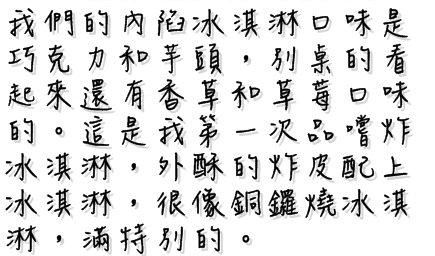 我們的內陷冰淇淋口味是
巧克力和芋頭，別桌的看
起來還有香草和草莓口味
的。這是我第一次品嚐炸
冰淇淋，外酥的炸皮配上
冰淇淋，很像銅鑼燒冰淇
淋，滿特別的。